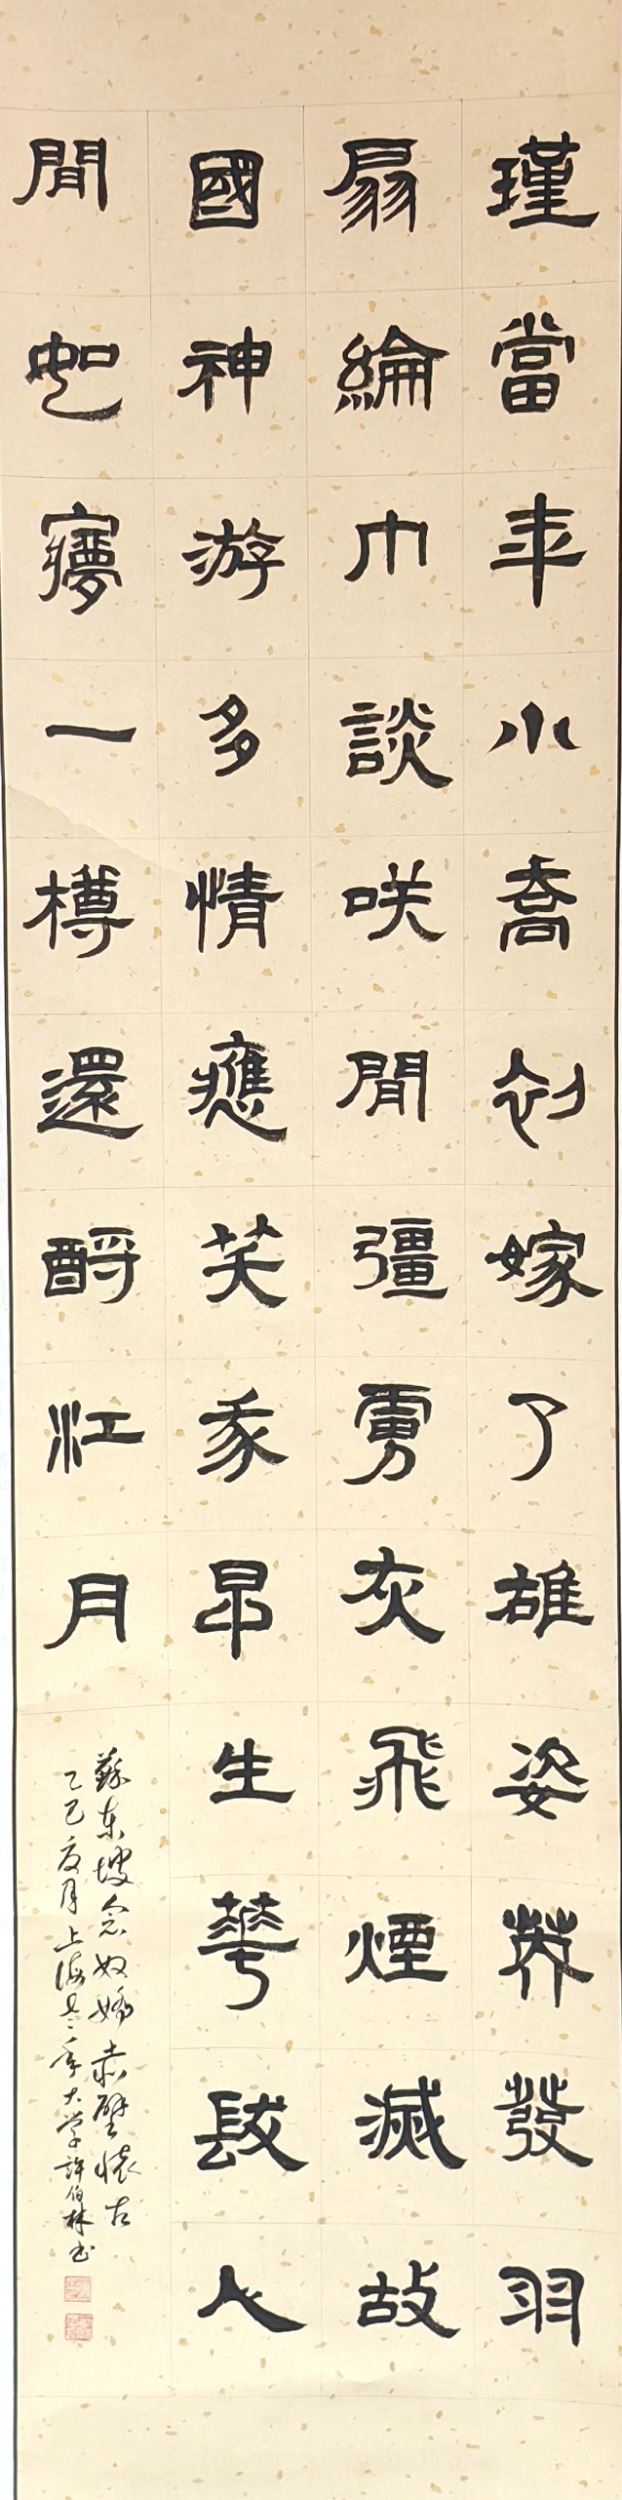 瑾當年小喬初嫁了雄姿英發羽
扇綸巾談咲間彊虜灰飛煙滅故
國神游多情應笑我早生華髮人
間如夢一樽還酹江月
蘇東坡念奴嬌赤壁懷古
乙巳夏月上海老年大学許伯林书